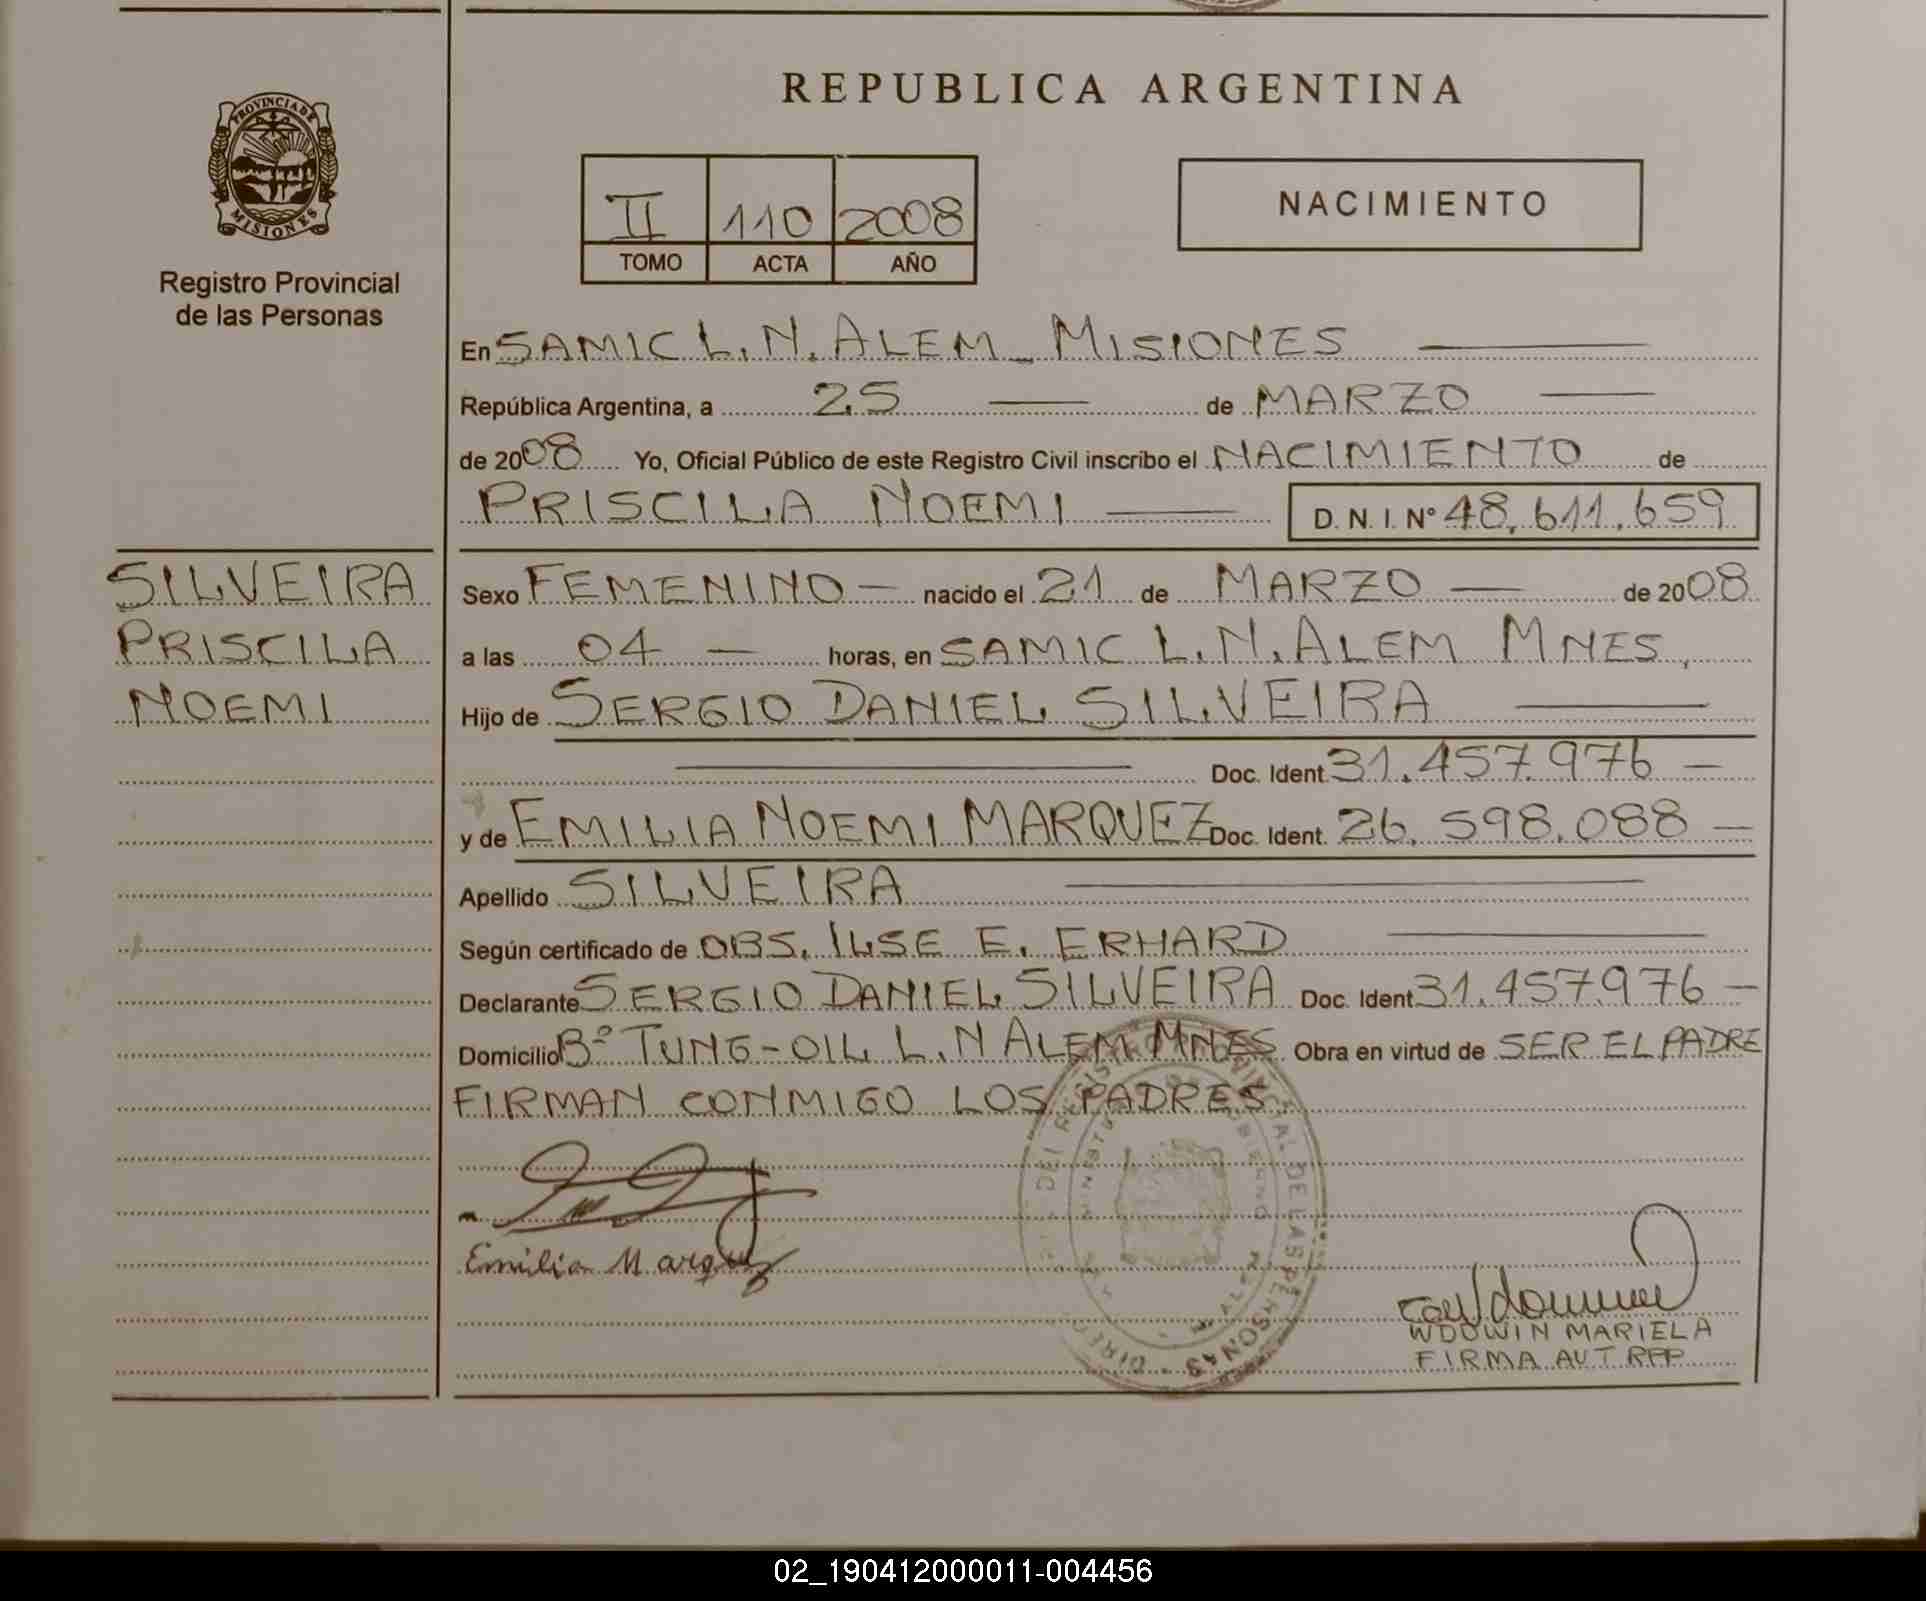 PROVINCIA DE
MISIONES
Registro Provincial
de las Personas
REPUBLICA ARGENTINA
II 110 2008
TOMO ACTA AÑO
NACIMIENTO
En SAMIC L.N. ALEM - MISIONES
República Argentina, a 25 de MARZO
de 2008 Yo, Oficial Público de este Registro Civil inscribo el NACIMIENTO de
PRISCILA NOEMI D.N.I. Nº 48.611.659
SILVEIRA
PRISCILA
NOEMI
Sexo FEMENINO - nacido el 21 de MARZO de 2008
a las 04 - horas, en SAMIC L.N. ALEM MNES,
Hijo de SERGIO DANIEL SILVEIRA
Doc. Ident. 31.457.976 -
y de EMILIA NOEMI MARQUEZ Doc. Ident. 26.598.088 -
Apellido SILVEIRA
Según certificado de OBS. ILSE E. ERHARD
Declarante SERGIO DANIEL SILVEIRA Doc. Ident. 31.457.976 -
Domicilio Bº TUNG-OIL L.N ALEM MNES Obra en virtud de SER EL PADRE
FIRMAN CONMIGO LOS PADRES.
Emilia Marquez
WDOWIN MARIELA
FIRMA AUT RPP
02_190412000011-004456